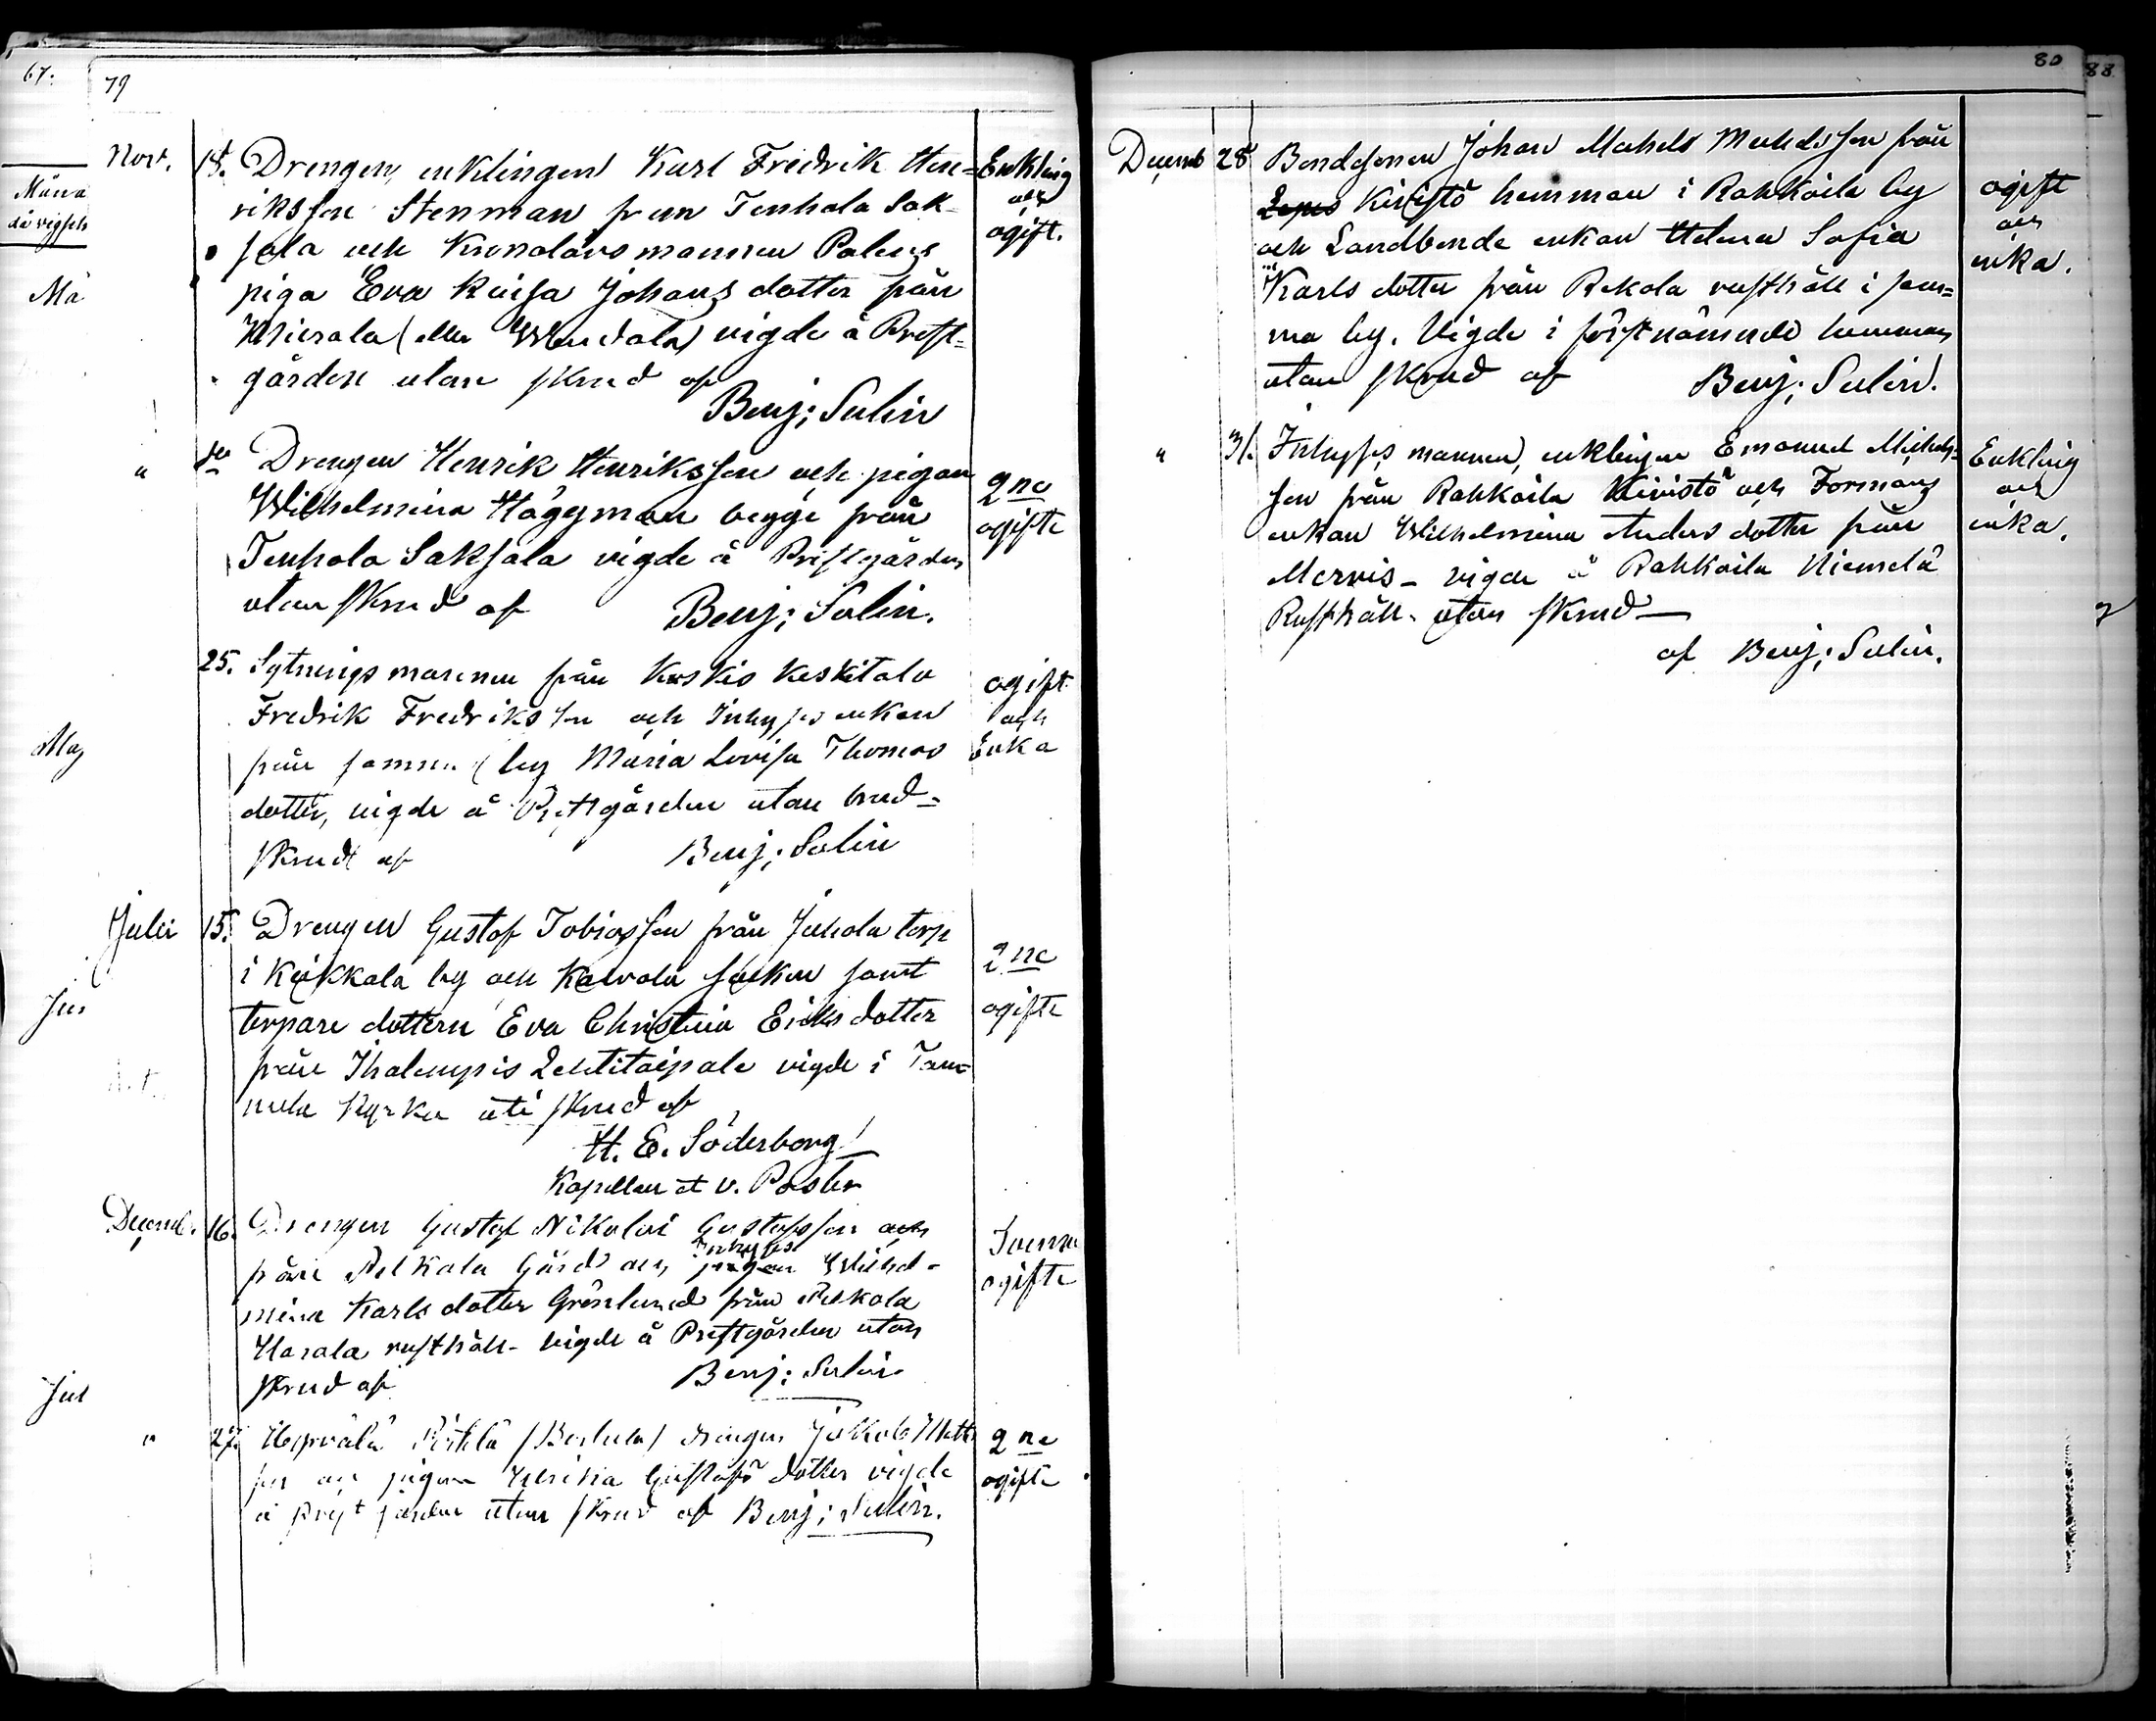 67.
79
Måna
då vigseln
Nov. 18. Drengen, enklingen Karl Fredrik Hen=
riksson Stenman från Tenhola Sak-
sala och Kronolänsmannen Palens
piga Eva Kaisa Johans dotter från
(eller vigde å Prest=
gården utan skrud af
Benj: Salin
Enkling
och
ogift.
" Drengen Henrik Henriksson och pigan
Wilhelmina Häggman begge från
Tenhola Saksala vigde å Prestgården
utan skrud af Benj: Salin.
2 ne
ogifte
25. Sytningsmannen från Keskis Keskitalo
Fredrik Fredriksson och Inhyses enkan
från samma by Maria Lovisa Thomas
dotter, vigde å Prestgården utan brud=
skrud af Benj: Salin
ogift
och
Enka
Julii 15. Drengen Gustaf Tobiasson från Juhola torp
i by och Kalvola socken samt
torpare dottern Eva Christina Eriks dotter
från Ihalempis Lehtitaipale vigde i Tam=
mela Kyrka uti skrud af
H. E. Söderborg
Kapellan et v. Pastor
2 ne
ogifte
Decemb. 16. Drengen Gustaf Nikolai Gustafsson och
från Gård och Inhyses Wilhel-
mina Karls dotter Grönlund från
rusthåll vigde å Prestgården utan
skrud af Benj: Salin
ogifte
" 27. drengen
son och pigan Ulrika Gustafs dotter vigde
å prestgården utan skrud af Benj: Salin.
2 ne
ogifte
80
88
Decemb 28 Bondesonen Johan från
Kivistö hemman i Rahkoila by
och Landbonde enkan Helena Sofia
Karls dotter från Rekola rusthåll i sam=
ma by. Vigde i förstnämnde hemman
utan skrud af Benj: Salin.
ogift
och
enka.
" 31. Inhyses mannen, enklingen Emanuel Michels=
son från Rahkoila Kivistö och Formans
enkan Wilhelmina Anders dotter från
Mervis - vigde å Rahkoila Niemelä
Rusthåll. utan skrud
af Benj: Salin.
Enkling
och
enka.